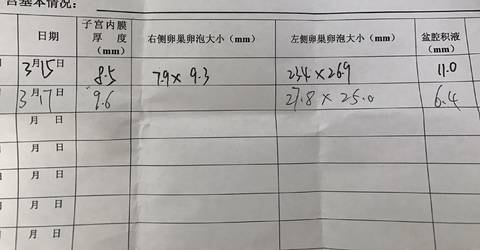 宫基本情况：
日期 子宫内膜厚度(mm) 右侧卵巢卵泡大小（mm） 左侧卵巢卵泡大小（mm） 盆腔积液(mm)
3月15日 8.5 7.9×9.3 23.4×26.9 11.0
3月17日 9.6 27.8×25.0 6.4
月 日
月 日
月 日
月 日
月 日